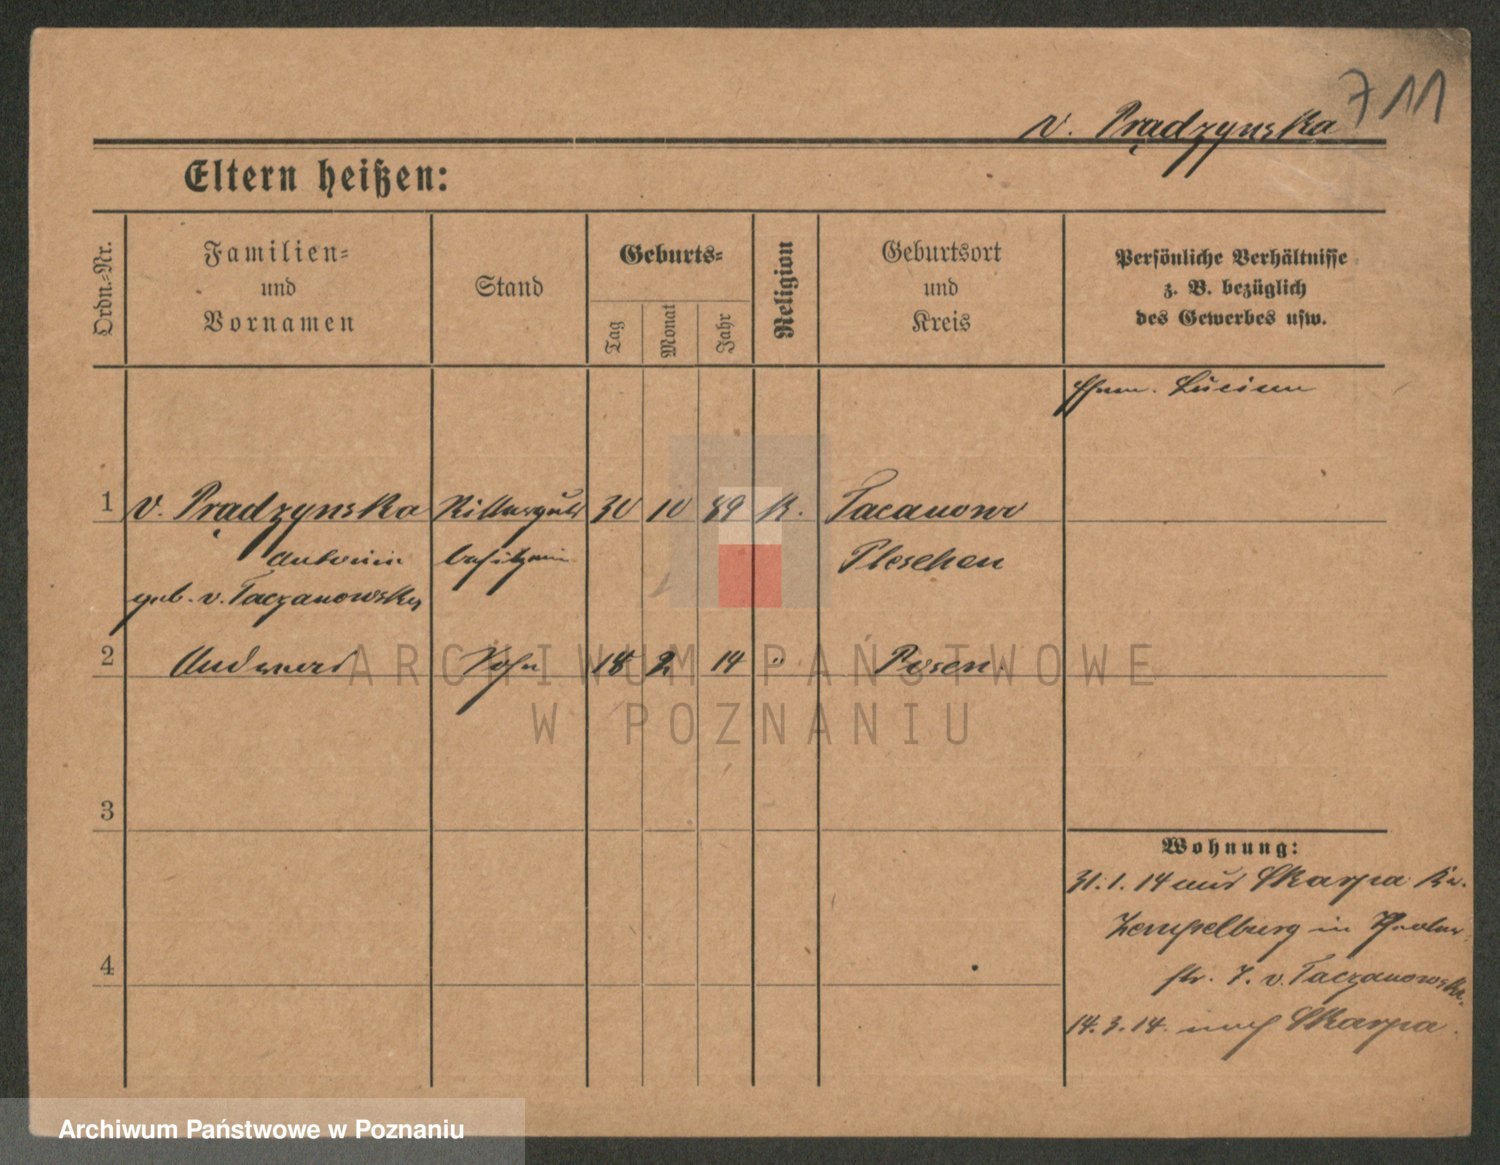 711
v. Prądzynska
Eltern heißen:
Ordn.-Nr.
Familien-
und
Vornamen
Stand
Geburts-
Tag
Monat
Jahr
Religion
Geburtsort
und
Kreis
Persönliche Verhältnisse
z. B. bezüglich
des Gewerbes usw.
Ehem. Lucian
1 v. Prądzynska Ritterguts 30 10 89 K. Tacanowo
Antonie besitzerin Pleschen
geb. v. Taczanowska
2 Sohn 18 2 14 " Posen
3
Wohnung:
31.1.14 aus Skarpa Kr.
Zempelburg in
4
str. 7. v. Taczanowska.
14.3.14. nach Skarpa.
ARCHIWUM PAŃSTWOWE
W POZNANIU
Archiwum Państwowe w Poznaniu